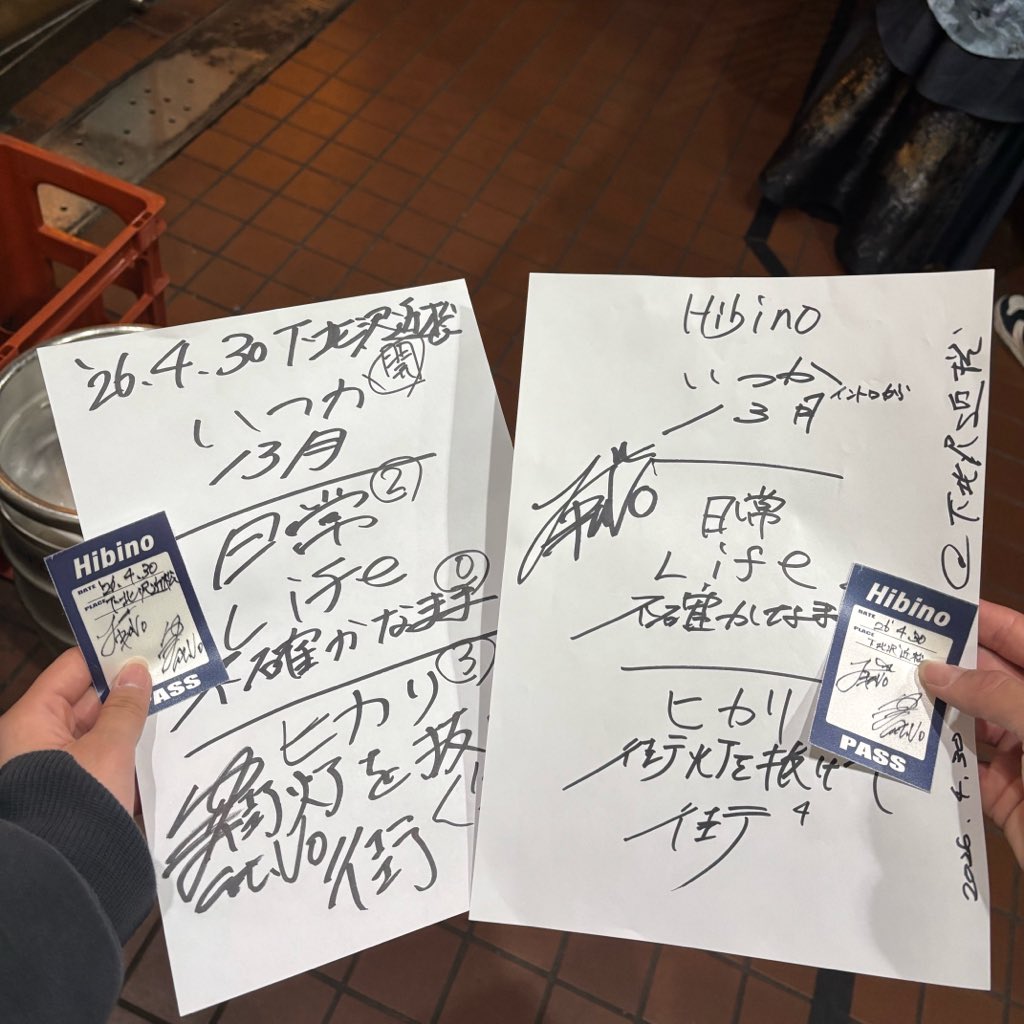 '26.4.30 下北沢近松
いつか
3月
日常 ②
Life
不確かなまま
ヒカリ ③
街灯を抜
街
Hibino
DATE '26.4.30
PLACE 下北沢近松
PASS
Hibino
いつか
3月 イントロから
日常
Life
不確かなま
ヒカリ
街灯を抜け
街 4
@下北沢近松
2026.4.30
Hibino
DATE 26.4.30
PLACE 下北沢近松
PASS